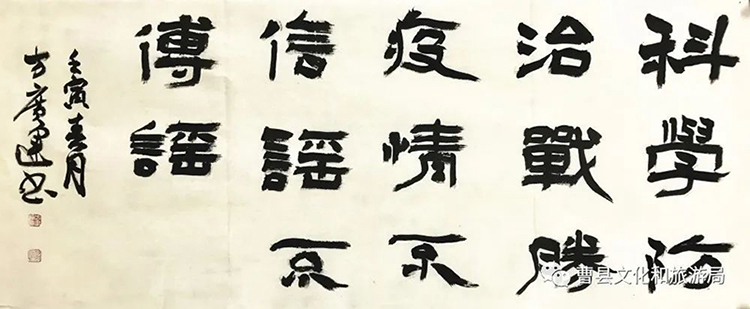 科學防
治戰勝
疫情不
信謠不
傳謠
壬寅春月
方廣建书
曹县文化和旅游局